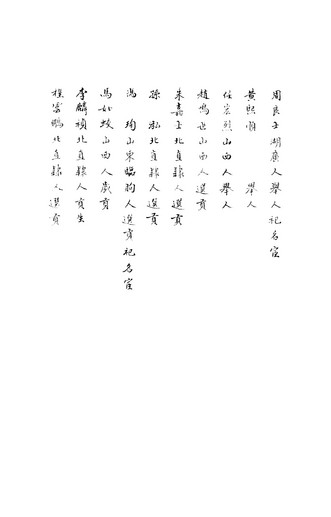 周良士湖廣人舉人祀名宦
黃熙 舉人
任宏烈山西人舉人
趙鳴世山西人選貢
朱嘉士北直隸人選貢
孫 泓北直隸人選貢
馮 珣山東臨朐人選貢祀名宦
馬如蛟山西人歲貢
李麟禎北直隸人貢生
程雲鵬北直隸人選貢